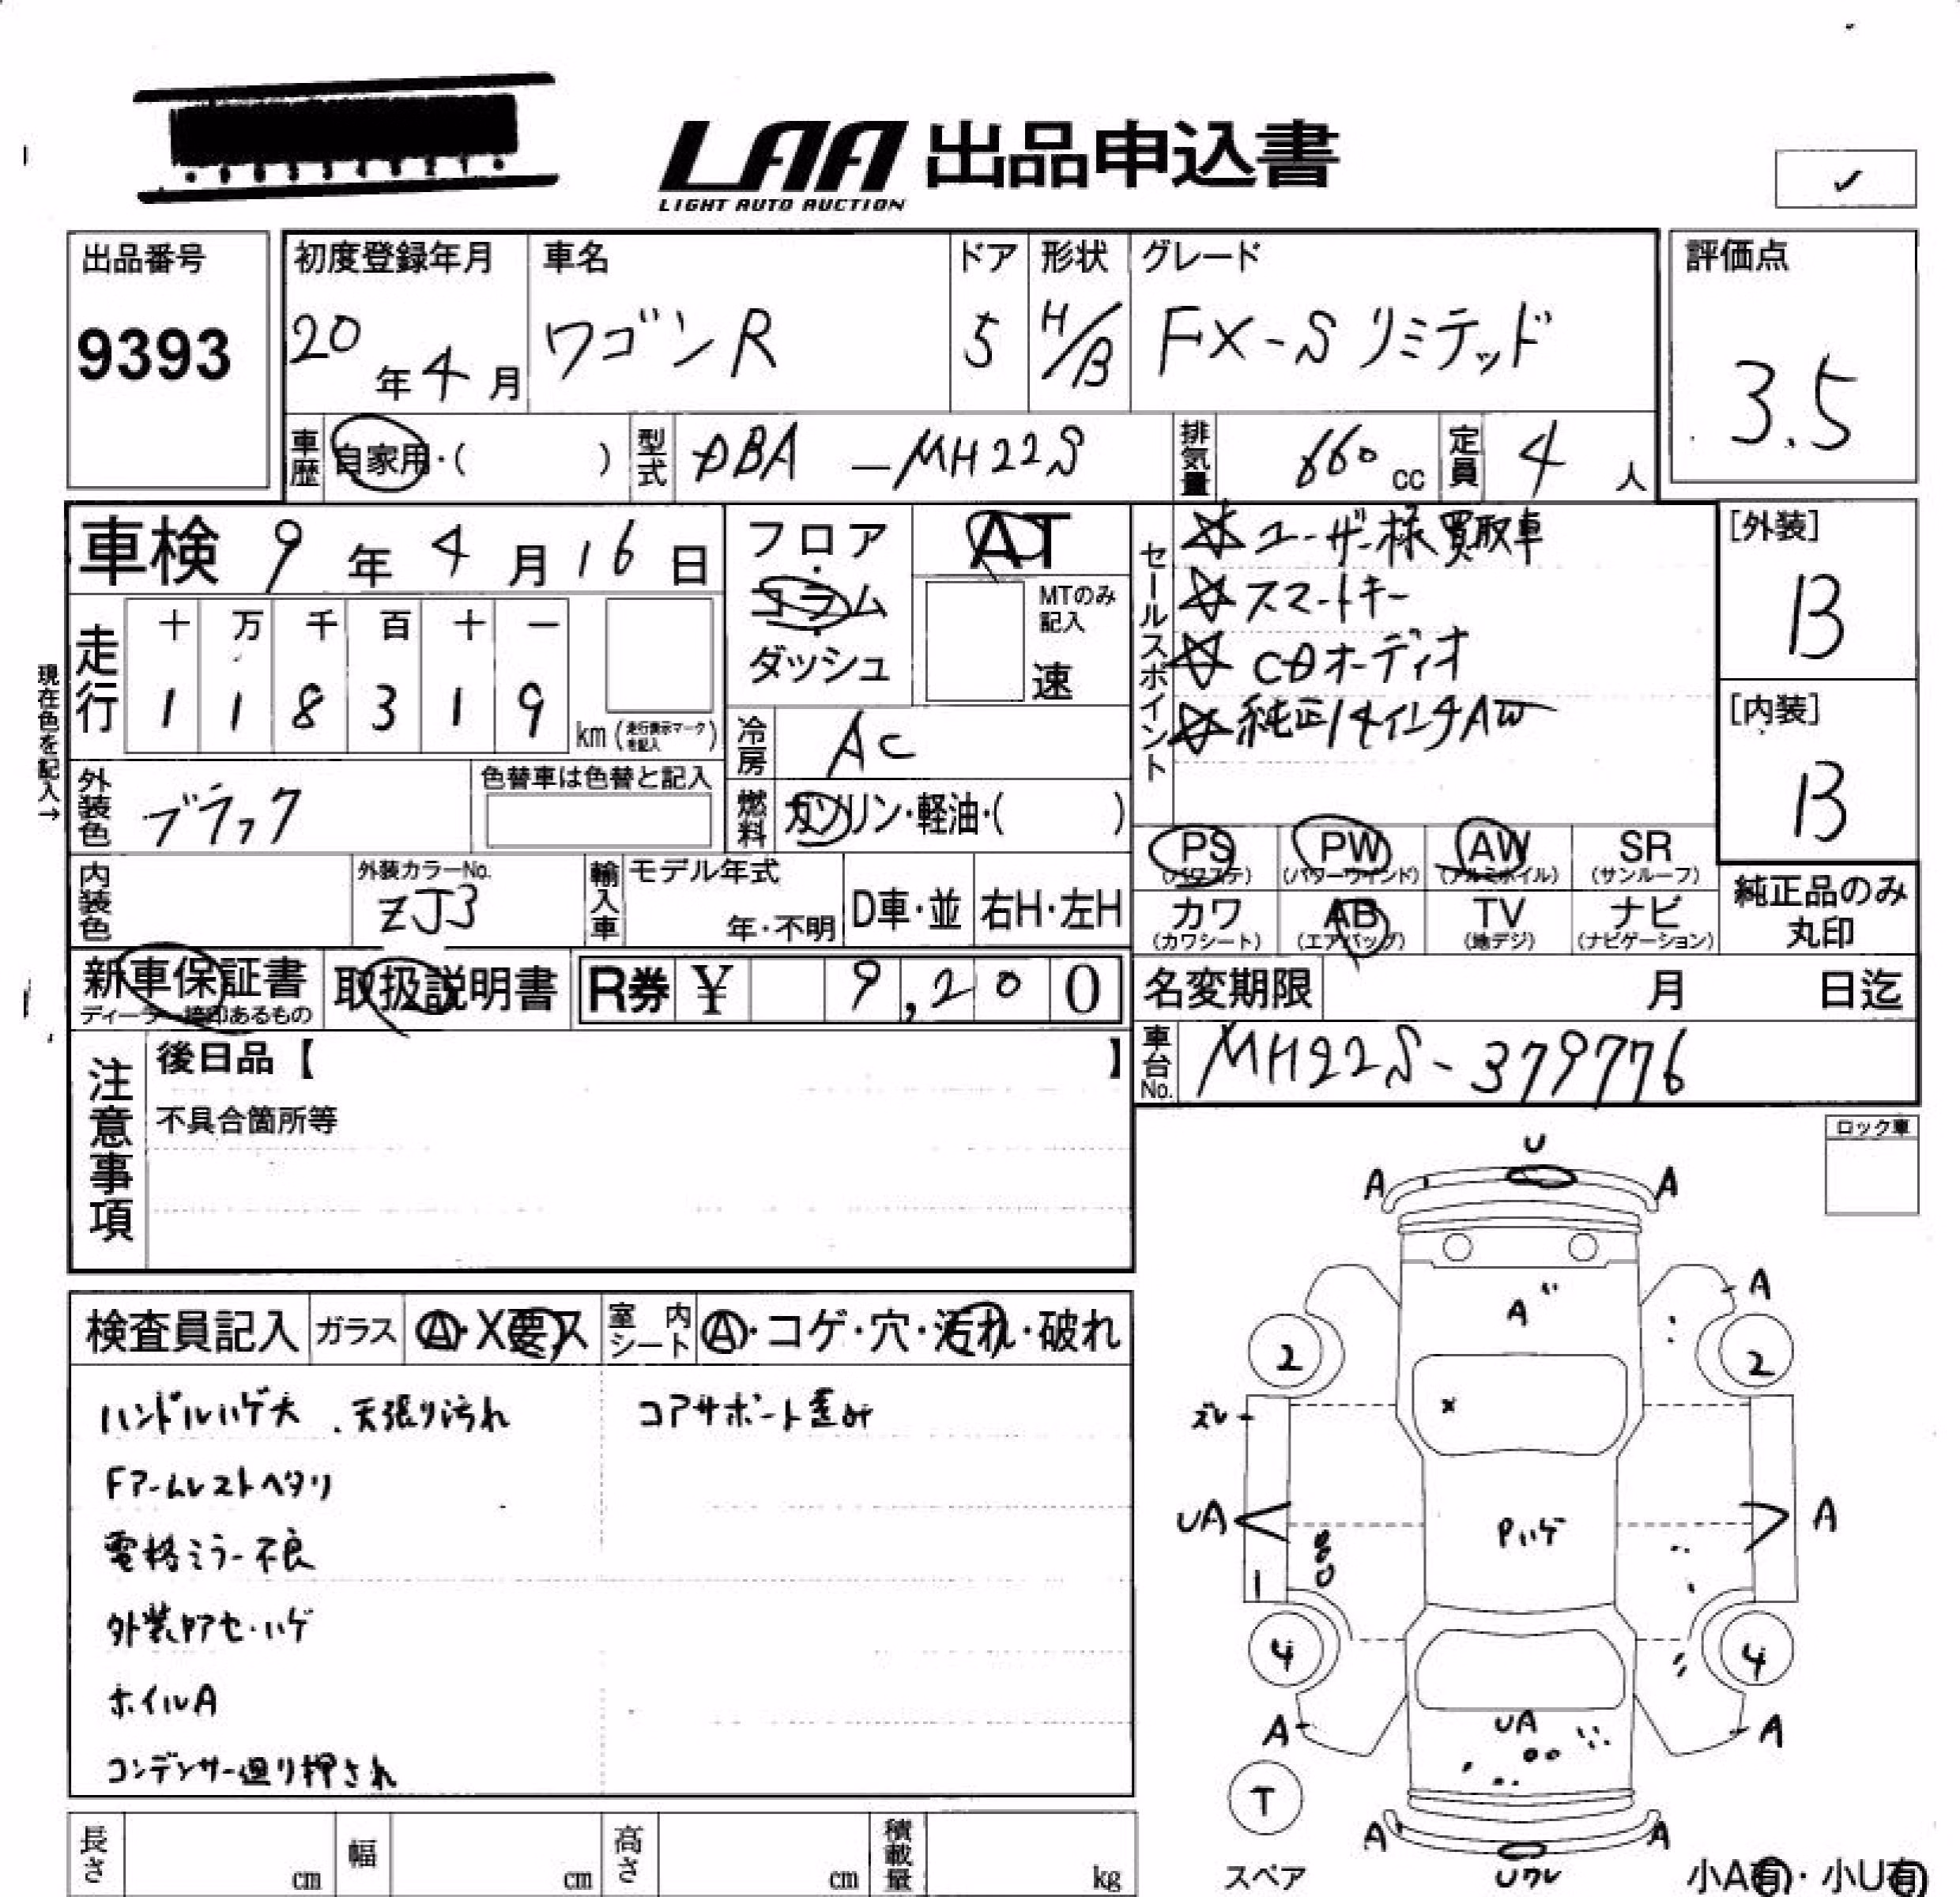 LAA 出品申込書
LIGHT AUTO AUCTION
✓
出品番号
9393
初度登録年月
20年4月
車名
ワゴンR
ドア
5
形状
H/B
グレード
FX-S リミテッド
評価点
3.5
車歴
自家用・( )
型式
DBA-MH22S
排気量
660cc
定員
4人
車検 9年4月16日
フロア・コラム・ダッシュ
AT
MTのみ記入
速
セールスポイント
☆ユーザー様買取車
☆スマートキー
☆CDオーディオ
☆純正14インチAW
[外装]
B
[内装]
B
現在色を記入→
走行
十 万 千 百 十 一
1 1 8 3 1 9 km (走行表示マークを記入)
冷房
AC
外装色
ブラック
色替車は色替と記入
燃料
ガソリン・軽油・( )
PS
(パワステ)
PW
(パワーウインド)
AW
(アルミホイル)
SR
(サンルーフ)
内装色
外装カラーNo.
ZJ3
輸入車
モデル年式
年・不明
D車・並
右H・左H
カワ
(カワシート)
AB
(エアバッグ)
TV
(地デジ)
ナビ
(ナビゲーション)
純正品のみ
丸印
新車保証書
ディーラー捺印あるもの
取扱説明書
R券 ¥ 9,200
名変期限 月 日迄
車台No.
MH22S-379776
注意事項
後日品【 】
不具合箇所等
ロック車
検査員記入
ガラス
A・X要ス
室内シート
A・コゲ・穴・汚れ・破れ
ハンドルハゲ大 . 天張り汚れ
コアサポート歪み
Fアームレストヘタリ
電格ミラー不良
外装アセ・ハゲ
ホイルA
コンデンサー廻り押され
U
A A
A
A
2 2
ズレ
x
UA
Pハゲ
A
4 4
A
UA
A
T
スペア
A A
Uワレ
小A有・小U有
長さ cm
幅 cm
高さ cm
積載量 kg